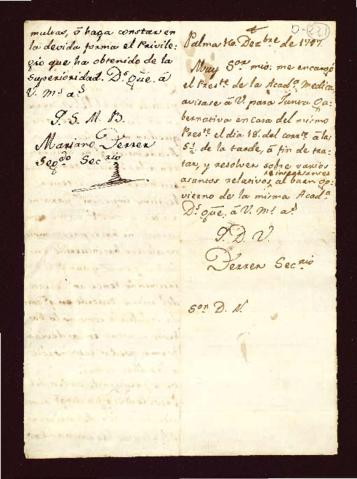 multas, ò haga constar en
la devida forma el Privile-
gio que ha obtenido de la
Superioridad. Ds. gue. â
V. ms. as.
Mariano Ferrer
Segdo. Secrio
Palma 16 Decbre de 1787.
Muy Sor. mio: me encargó
el Preste. de la Acada. Medica
avisase â V. para Junta Gu-
bernativa en casa del mismo
Preste. el dia 18. del corrte. à la
5a. de la tarde, à fin de tra-
tar, y resolver sobre varios
interesantes
asuntos relativos al buen go-
vierno de la misma Acada.
Ds. gue. â V. ms. as.
Ferrer Secrio
Sor. D. N.